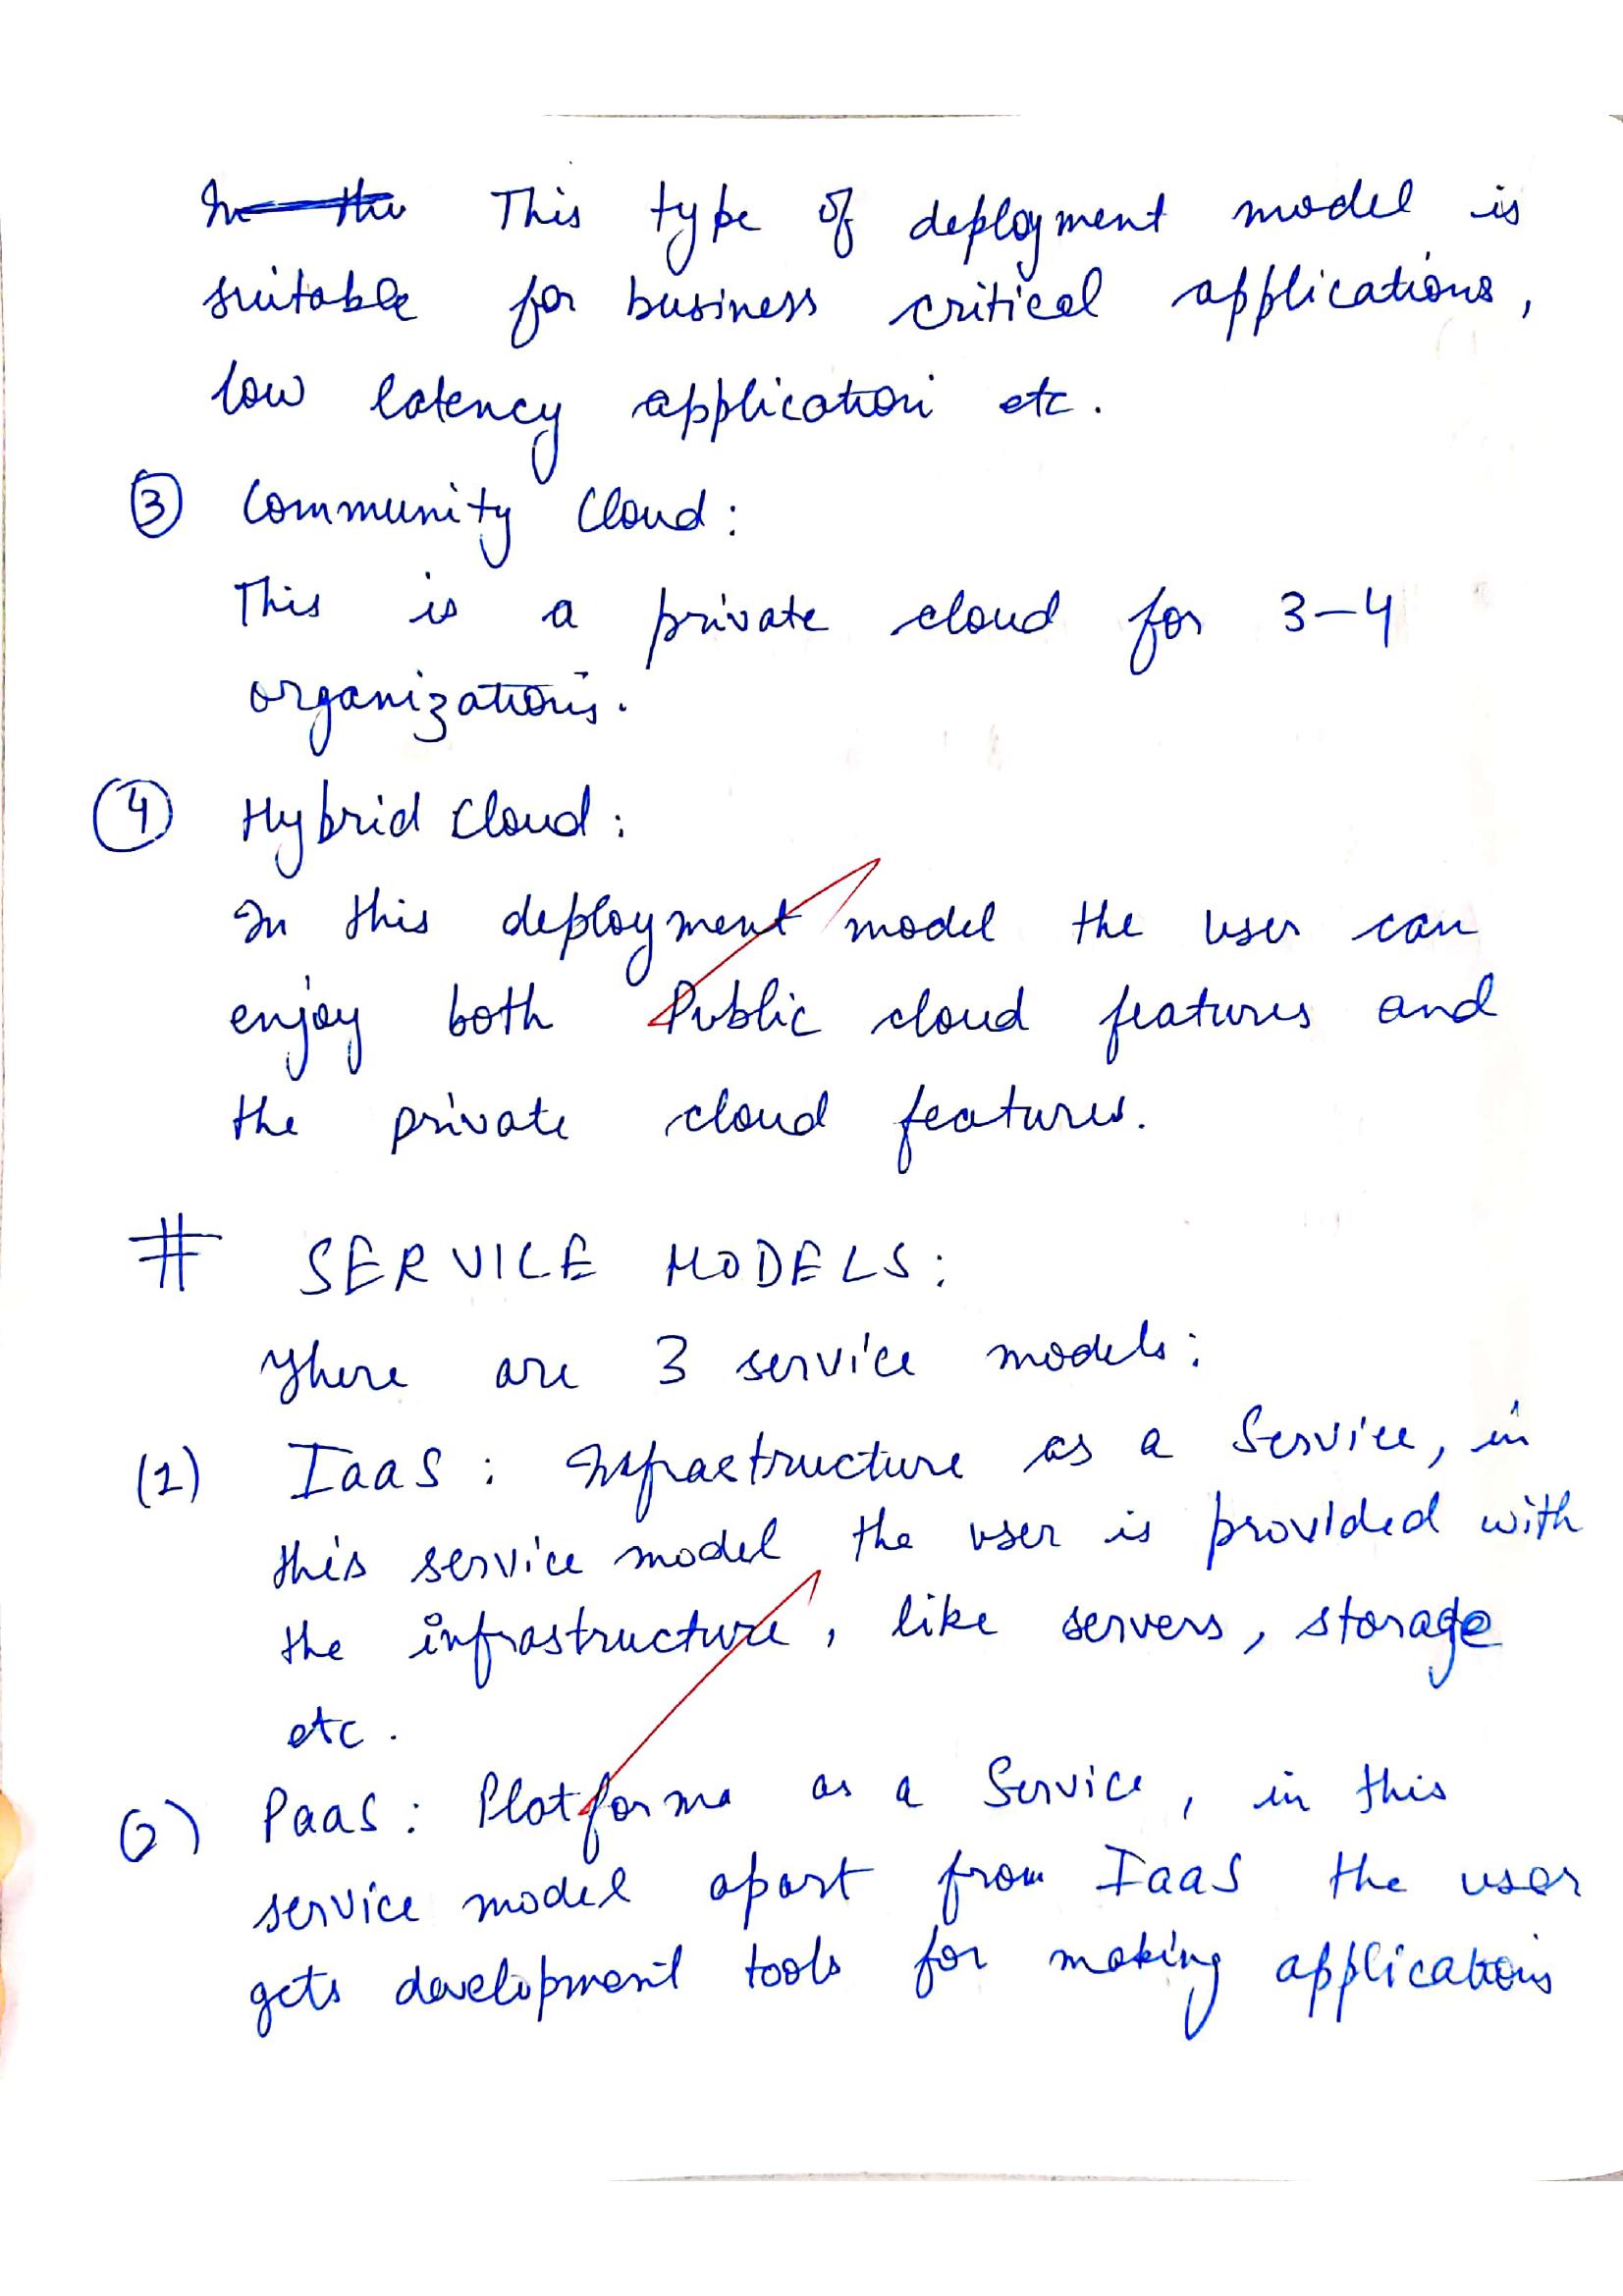 In the This type of deployment model is
suitable for business critical applications,
low latency application etc.
③ Community Cloud:
This is a private cloud for 3-4
organizations.
④ Hybrid Cloud:
In this deployment model the user can
enjoy both Public cloud features and
the private cloud features.
# SERVICE MODELS:
There are 3 service models:
(1) IaaS: Infrastructure as a Service, in
this service model the user is provided with
the infrastructure, like servers, storage
etc.
(2) PaaS: Platforma as a Service, in this
service model apart from IaaS the user
gets development tools for making applications